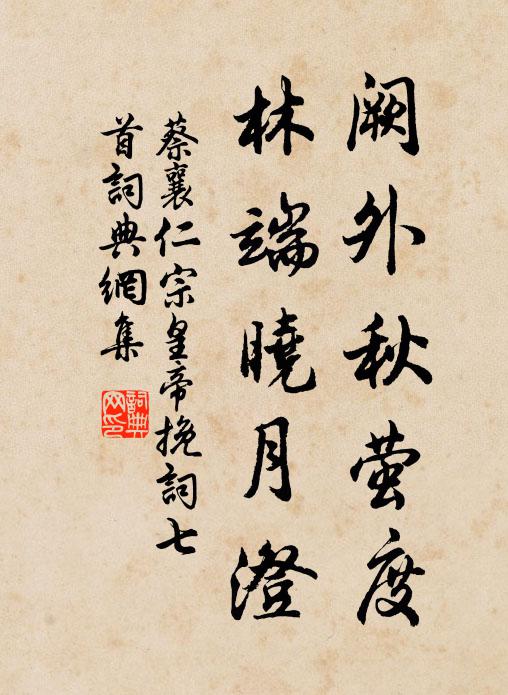 阙外秋萤度
林端曉月澄
蔡襄仁宗皇帝挽詞七
首詞典網集
詞典网印